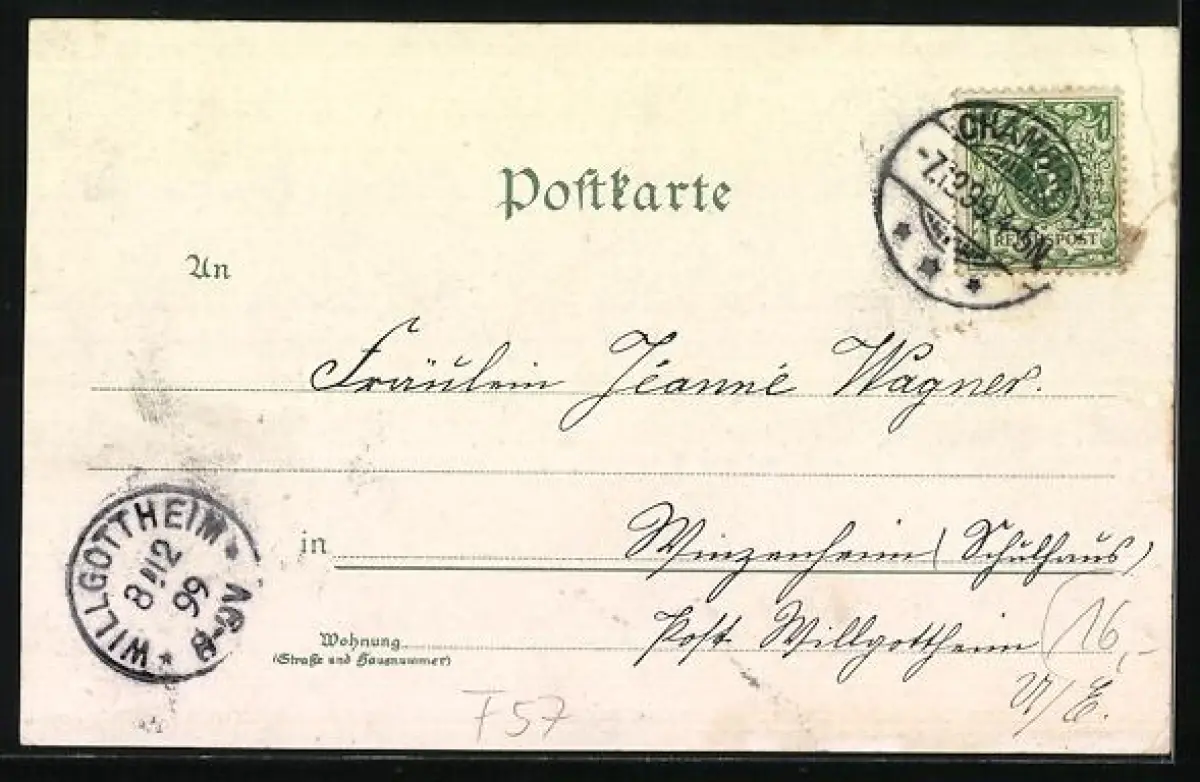 Postkarte
REICHSPOST
-7.12.99. 4-5N.
An
Fräulein Jeanne Wagner.
in Winzenheim (Schulhaus)
Wohnung
(Straße und Hausnummer)
Post Willgottheim
U/E.
16,-
WILLGOTTHEIM
8 12
99
8-9V
F57